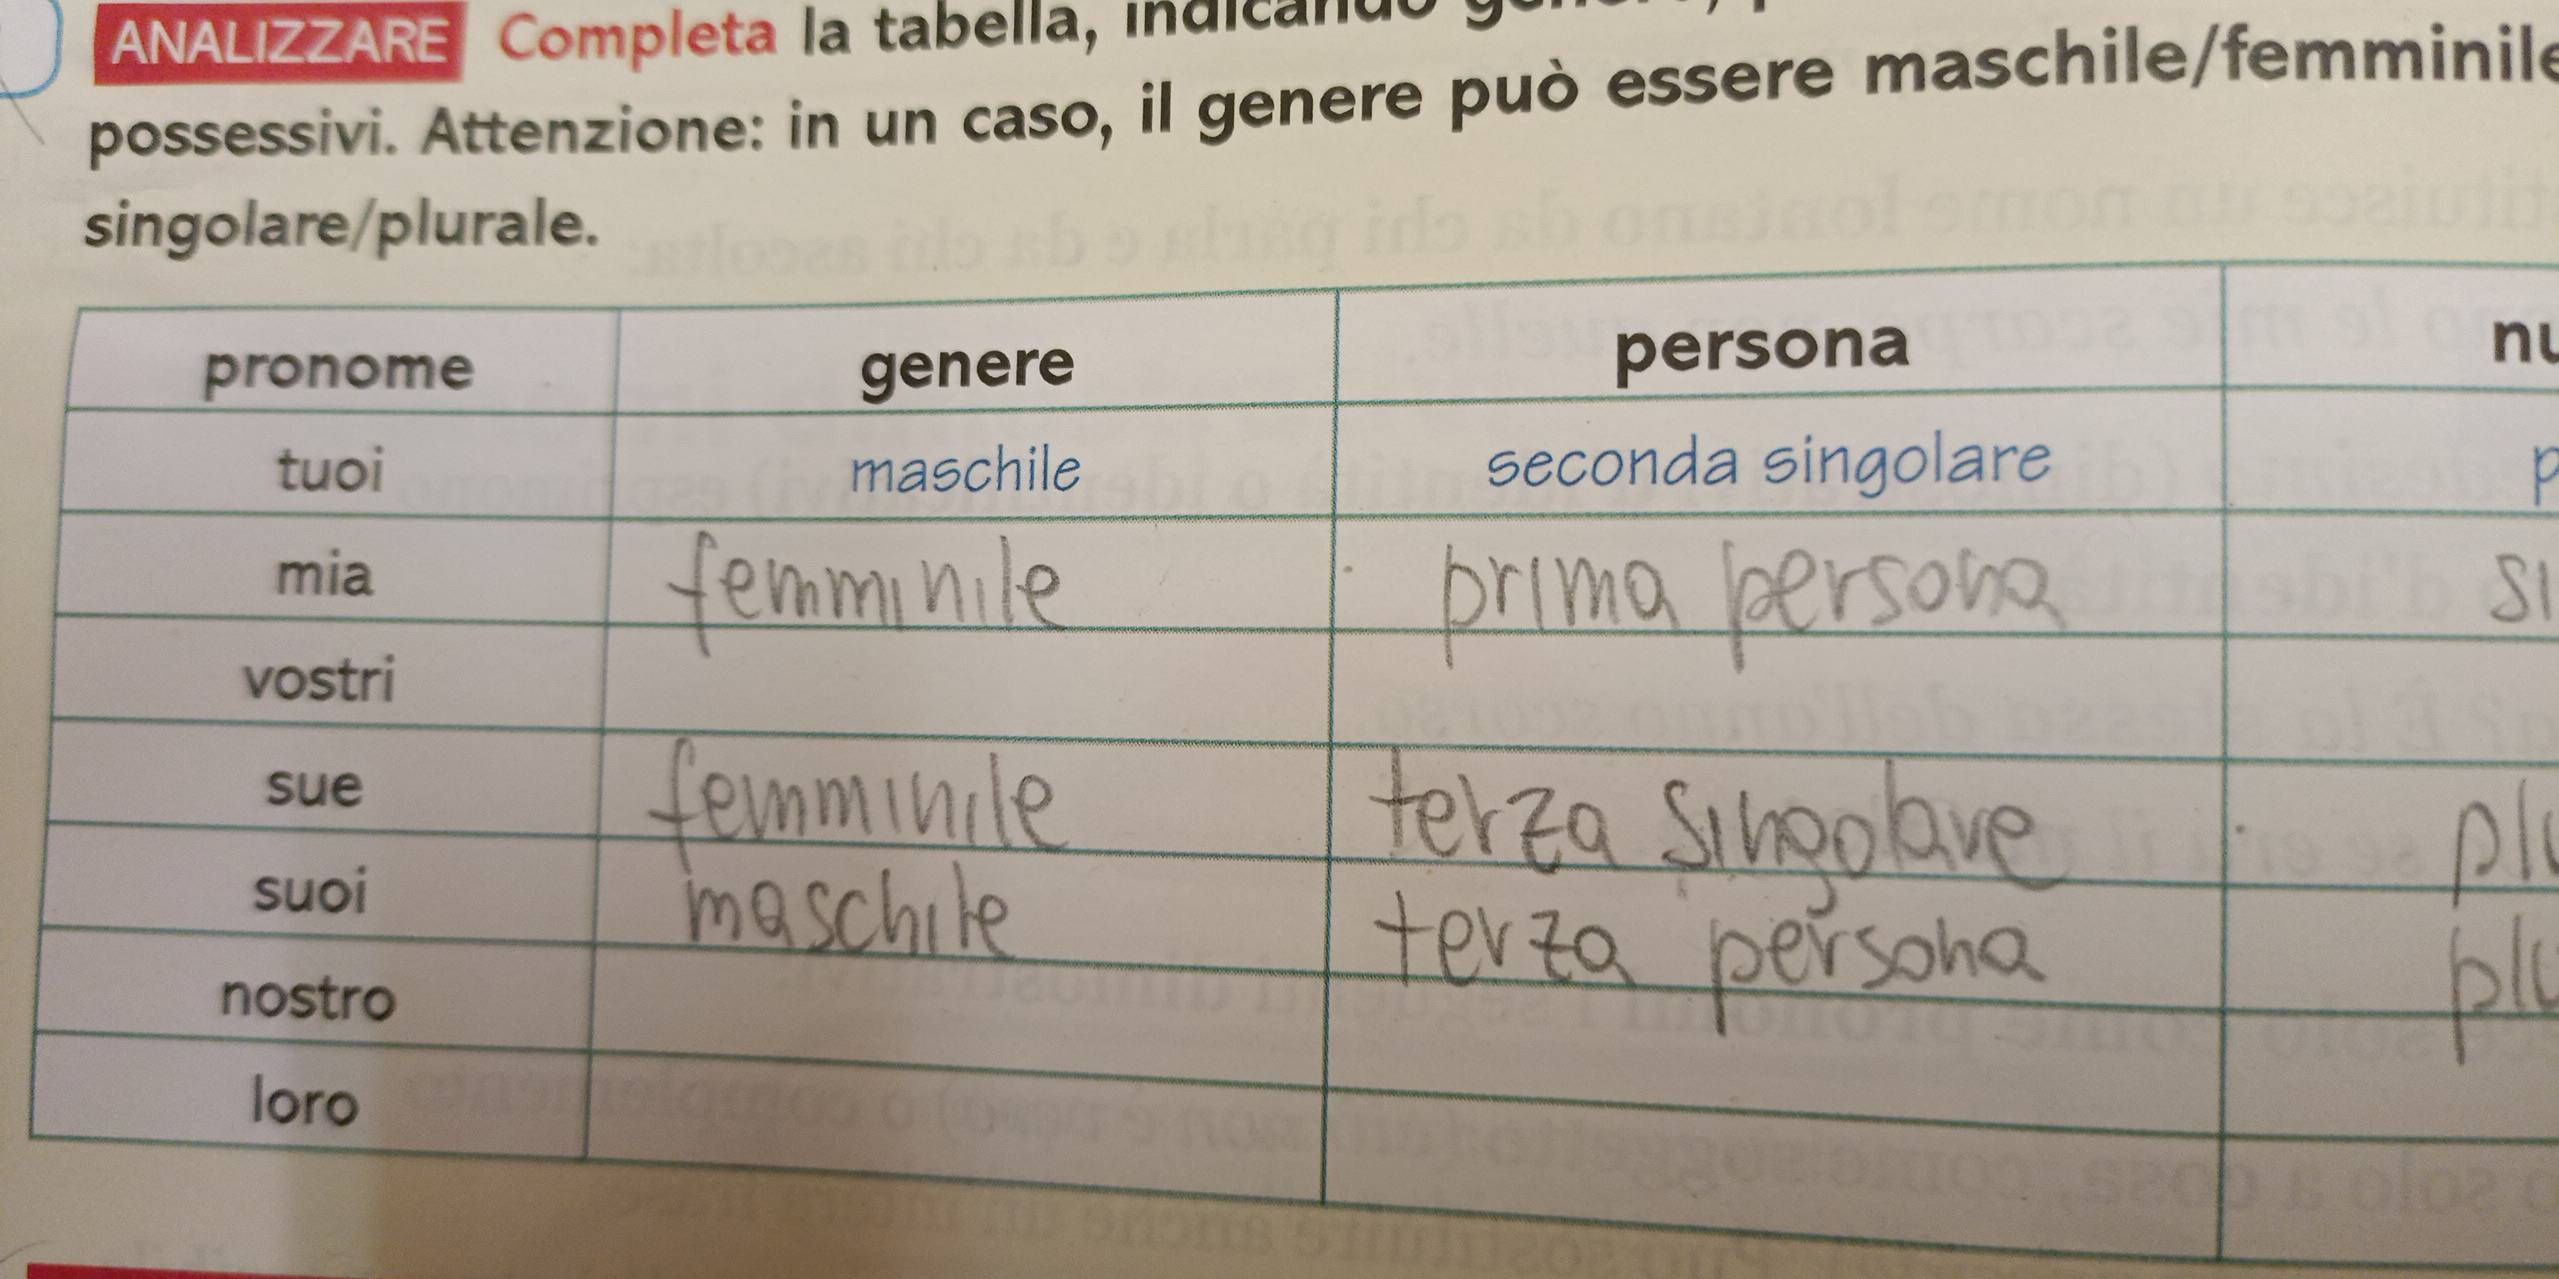 ANALIZZARE Completa la tabella, indicando
possessivi. Attenzione: in un caso, il genere può essere maschile/femminile
singolare/plurale.
pronome genere persona nu
tuoi maschile seconda singolare p
mia femminile prima persona si
vostri
sue femminile terza singolare plu
suoi maschile terza persona plu
nostro
loro